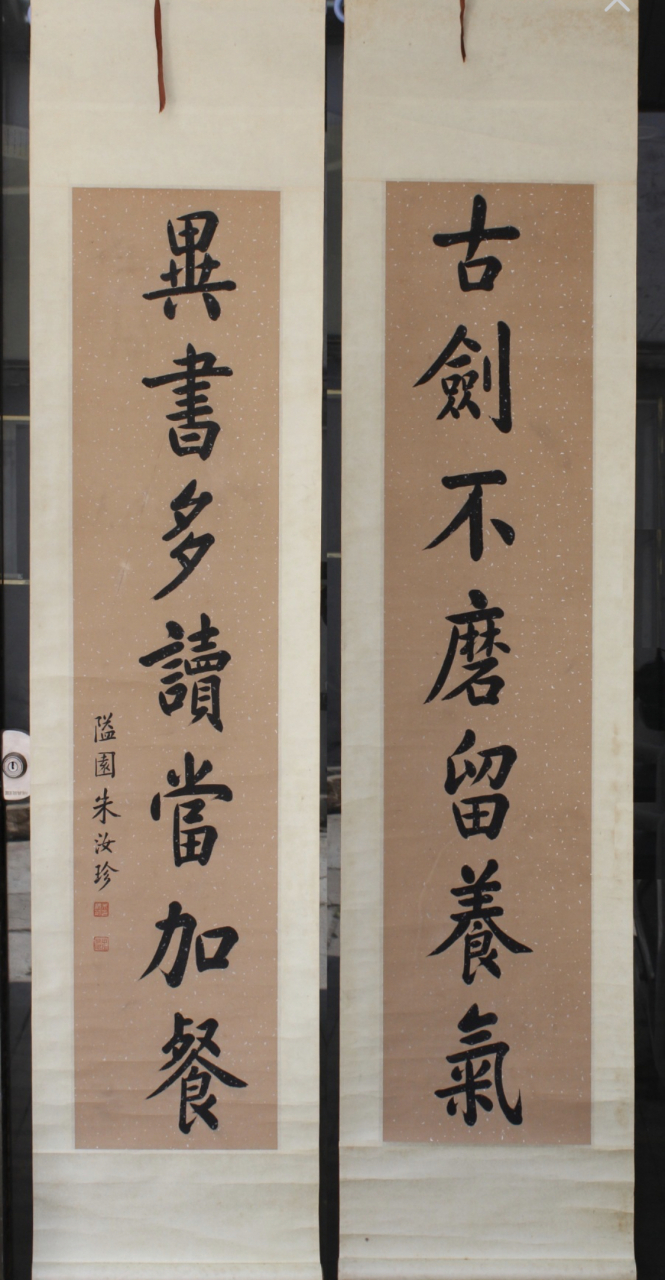 古劍不磨留養氣
異書多讀當加餐
隘園朱汝珍